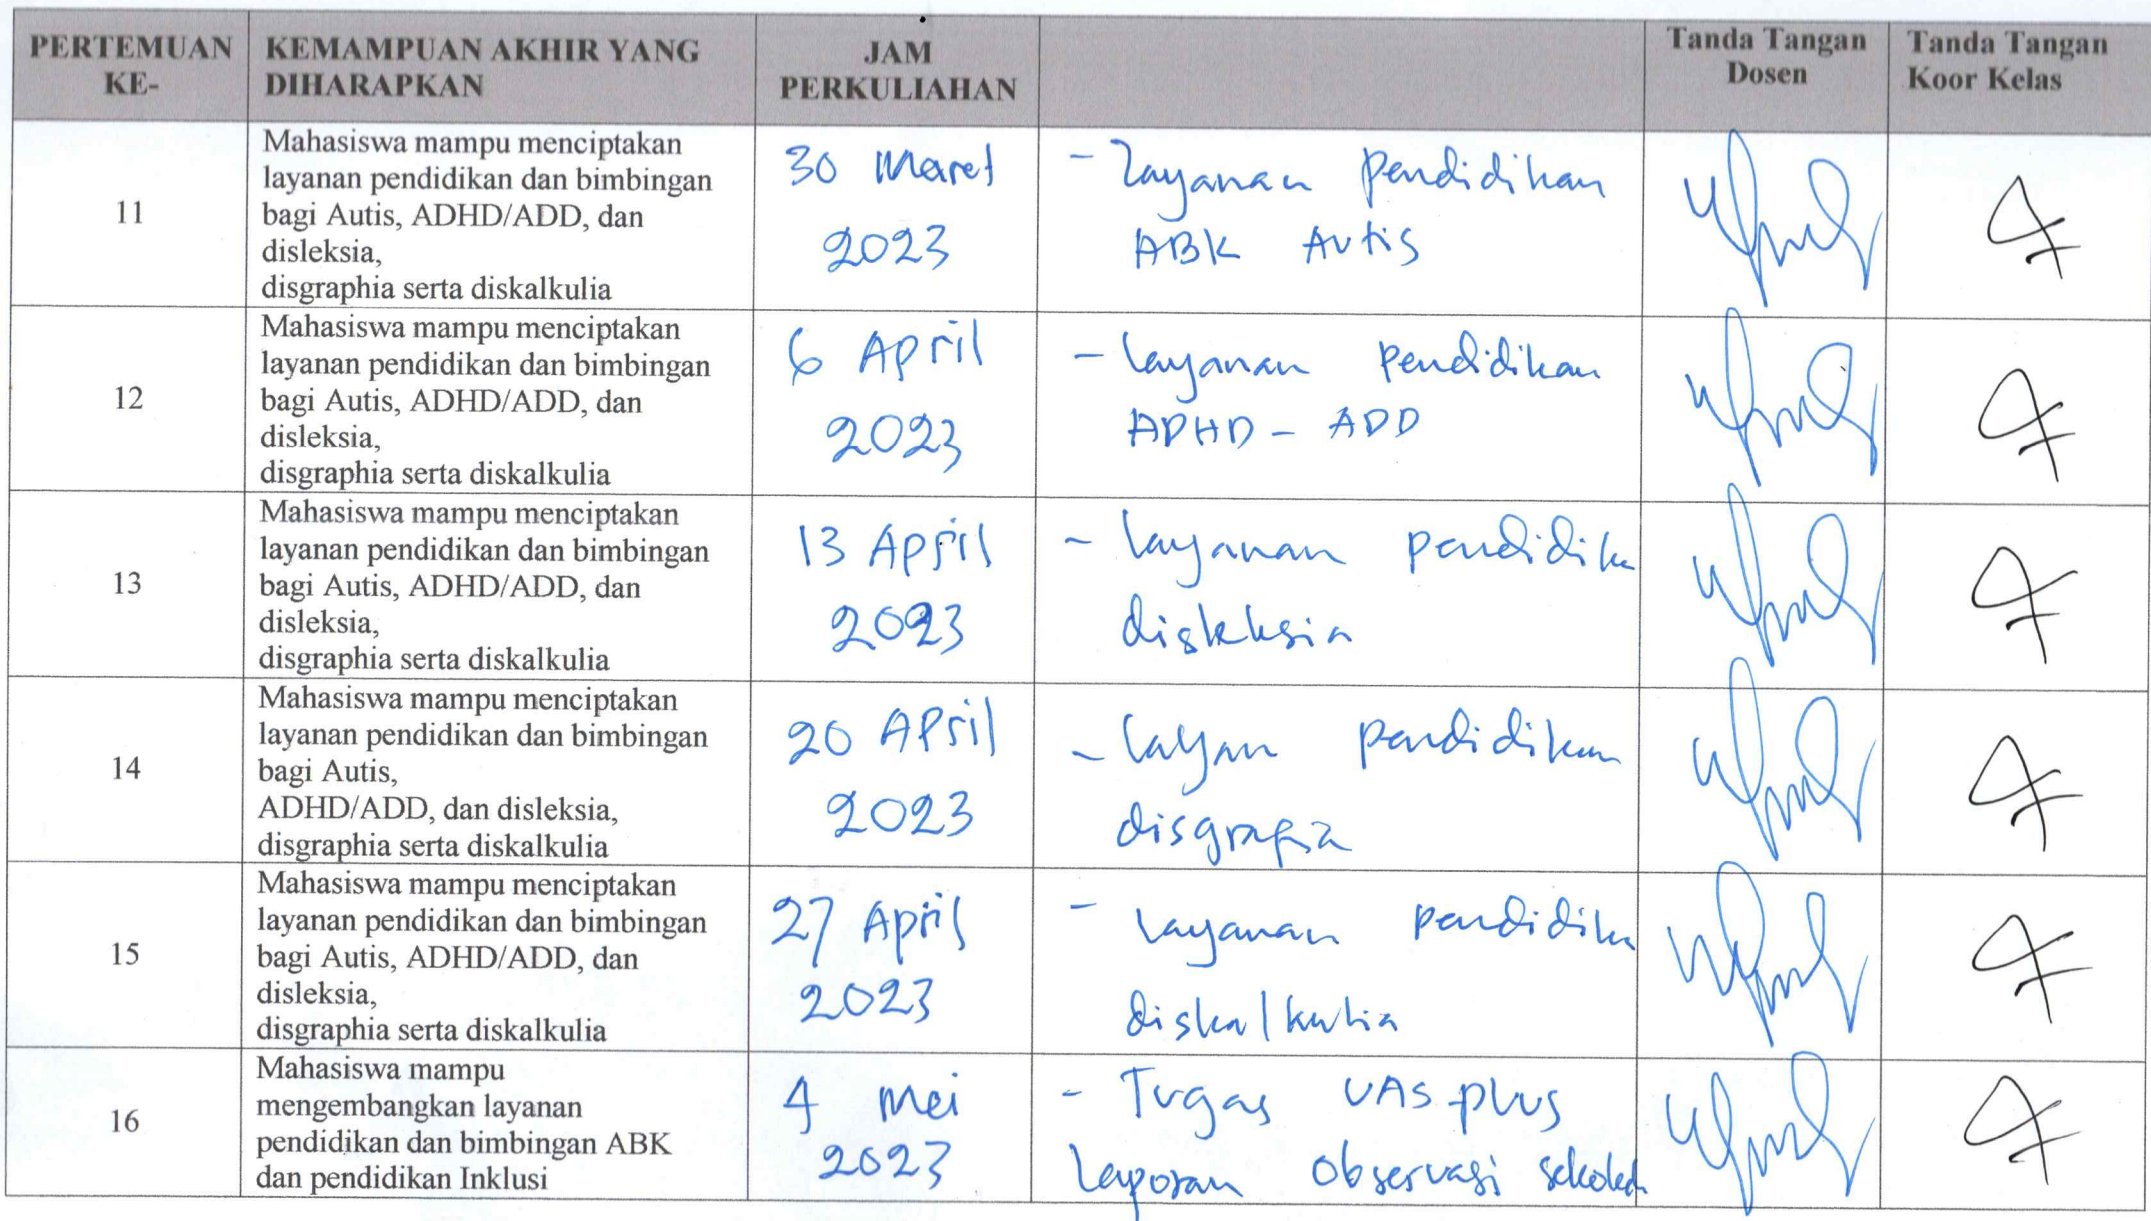 PERTEMUAN KE-
KEMAMPUAN AKHIR YANG DIHARAPKAN
JAM PERKULIAHAN
Tanda Tangan Dosen
Tanda Tangan Koor Kelas
11
Mahasiswa mampu menciptakan
layanan pendidikan dan bimbingan
bagi Autis, ADHD/ADD, dan
disleksia,
disgraphia serta diskalkulia
30 Maret
2023
- Layanan Pendidikan
ABK Autis
12
Mahasiswa mampu menciptakan
layanan pendidikan dan bimbingan
bagi Autis, ADHD/ADD, dan
disleksia,
disgraphia serta diskalkulia
6 April
2023
- Layanan Pendidikan
ADHD - ADD
13
Mahasiswa mampu menciptakan
layanan pendidikan dan bimbingan
bagi Autis, ADHD/ADD, dan
disleksia,
disgraphia serta diskalkulia
13 April
2023
- Layanan pendidika
disleksia
14
Mahasiswa mampu menciptakan
layanan pendidikan dan bimbingan
bagi Autis,
ADHD/ADD, dan disleksia,
disgraphia serta diskalkulia
20 April
2023
- layan pendidikan
disgrafia
15
Mahasiswa mampu menciptakan
layanan pendidikan dan bimbingan
bagi Autis, ADHD/ADD, dan
disleksia,
disgraphia serta diskalkulia
27 April
2023
- Layanan pendidika
diskalkulia
16
Mahasiswa mampu
mengembangkan layanan
pendidikan dan bimbingan ABK
dan pendidikan Inklusi
4 Mei
2023
- Tugas UAS plus
Laporan Observasi sekolah